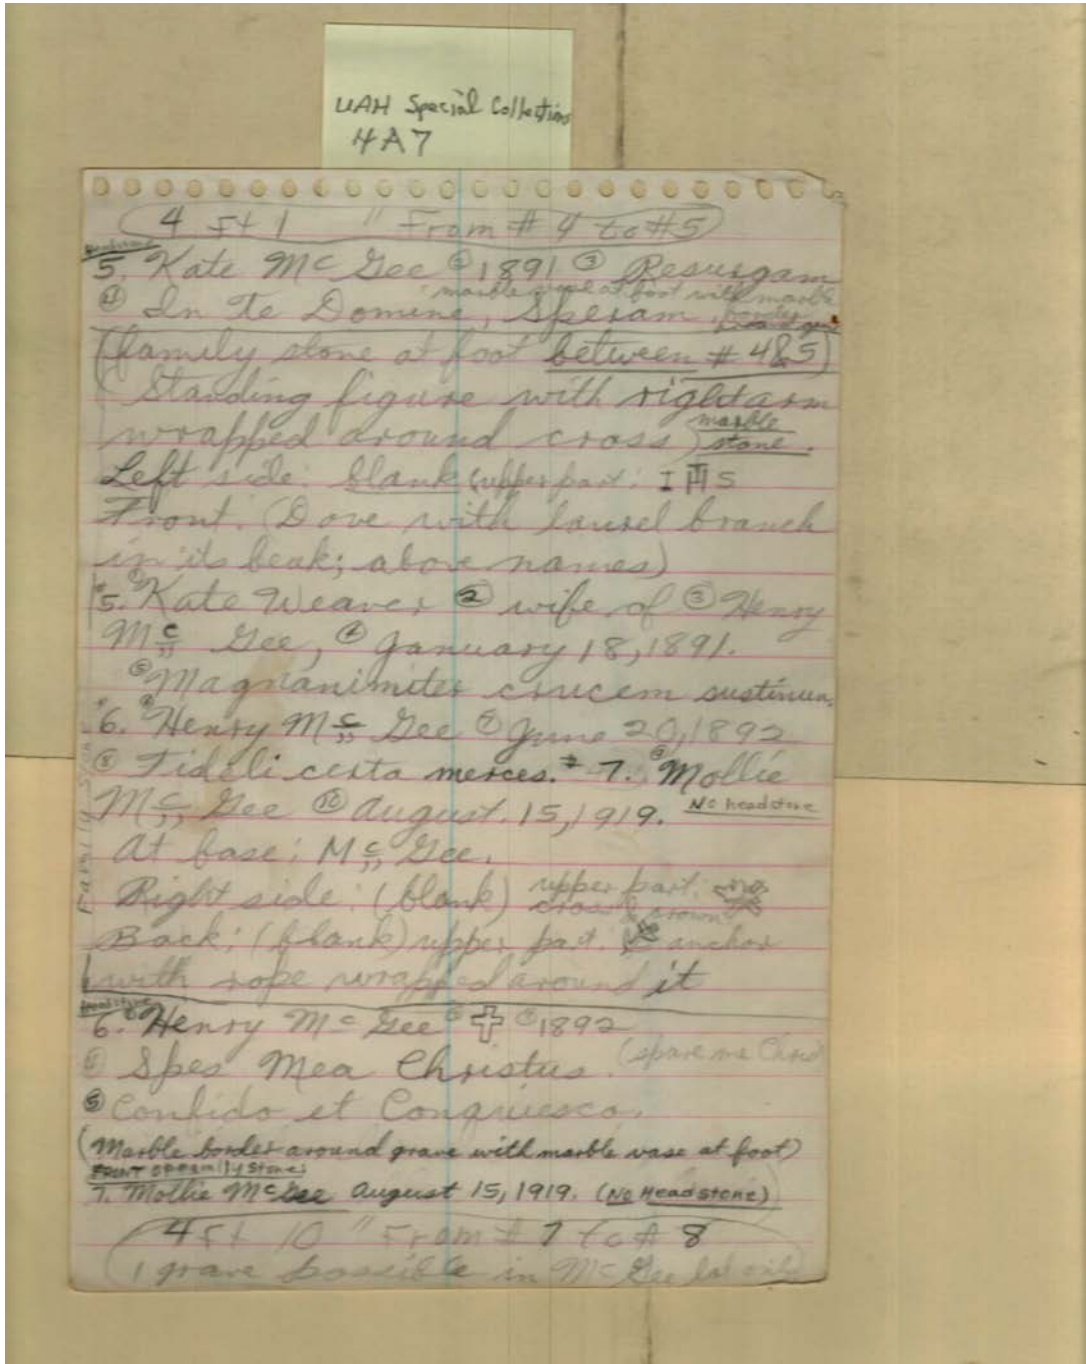 UAH Special Collections
4A7
4 ft 1 " From # 4 to #5
Headstone
5. Kate Mc Gee ② 1891 ③ Resurgam
④ In Te Domine, Speram.
marble vase at foot with marble
border
(family stone at foot between # 4&5)
Standing figure with right arm
wrapped around cross) marble
stone.
Left side: blank (upper part: IHS
Front: (Dove with laurel branch
in its beak; above names)
#5. ① Kate Weaver ② wife of ③ Henry
Mc Gee, ④ January 18, 1891.
⑤ Magnanimiter crucem sustinun.
#6. ⑥ Henry Mc Gee ⑦ June 20, 1892
⑧ Fideli certa merces. # 7. ⑨ Mollie
Mc Gee ⑩ August. 15, 1919. No headstone
At base: Mc Gee.
Family Stone
Right side: (blank) upper part:
cross & crown
Back: (blank) upper part: anchor
with rope wrapped around it
Headstone
6. ① Henry Mc Gee ② ③ 1892
④ Spes Mea Christus. (spare me Christ)
⑤ Confido et Conquiesco.
(Marble border around grave with marble vase at foot)
FRONT OF Family Stone:
7. Mollie McGee August 15, 1919. (No Headstone)
4 ft 10 " From # 7 to # 8
(1 grave possible in Mc Gee lot